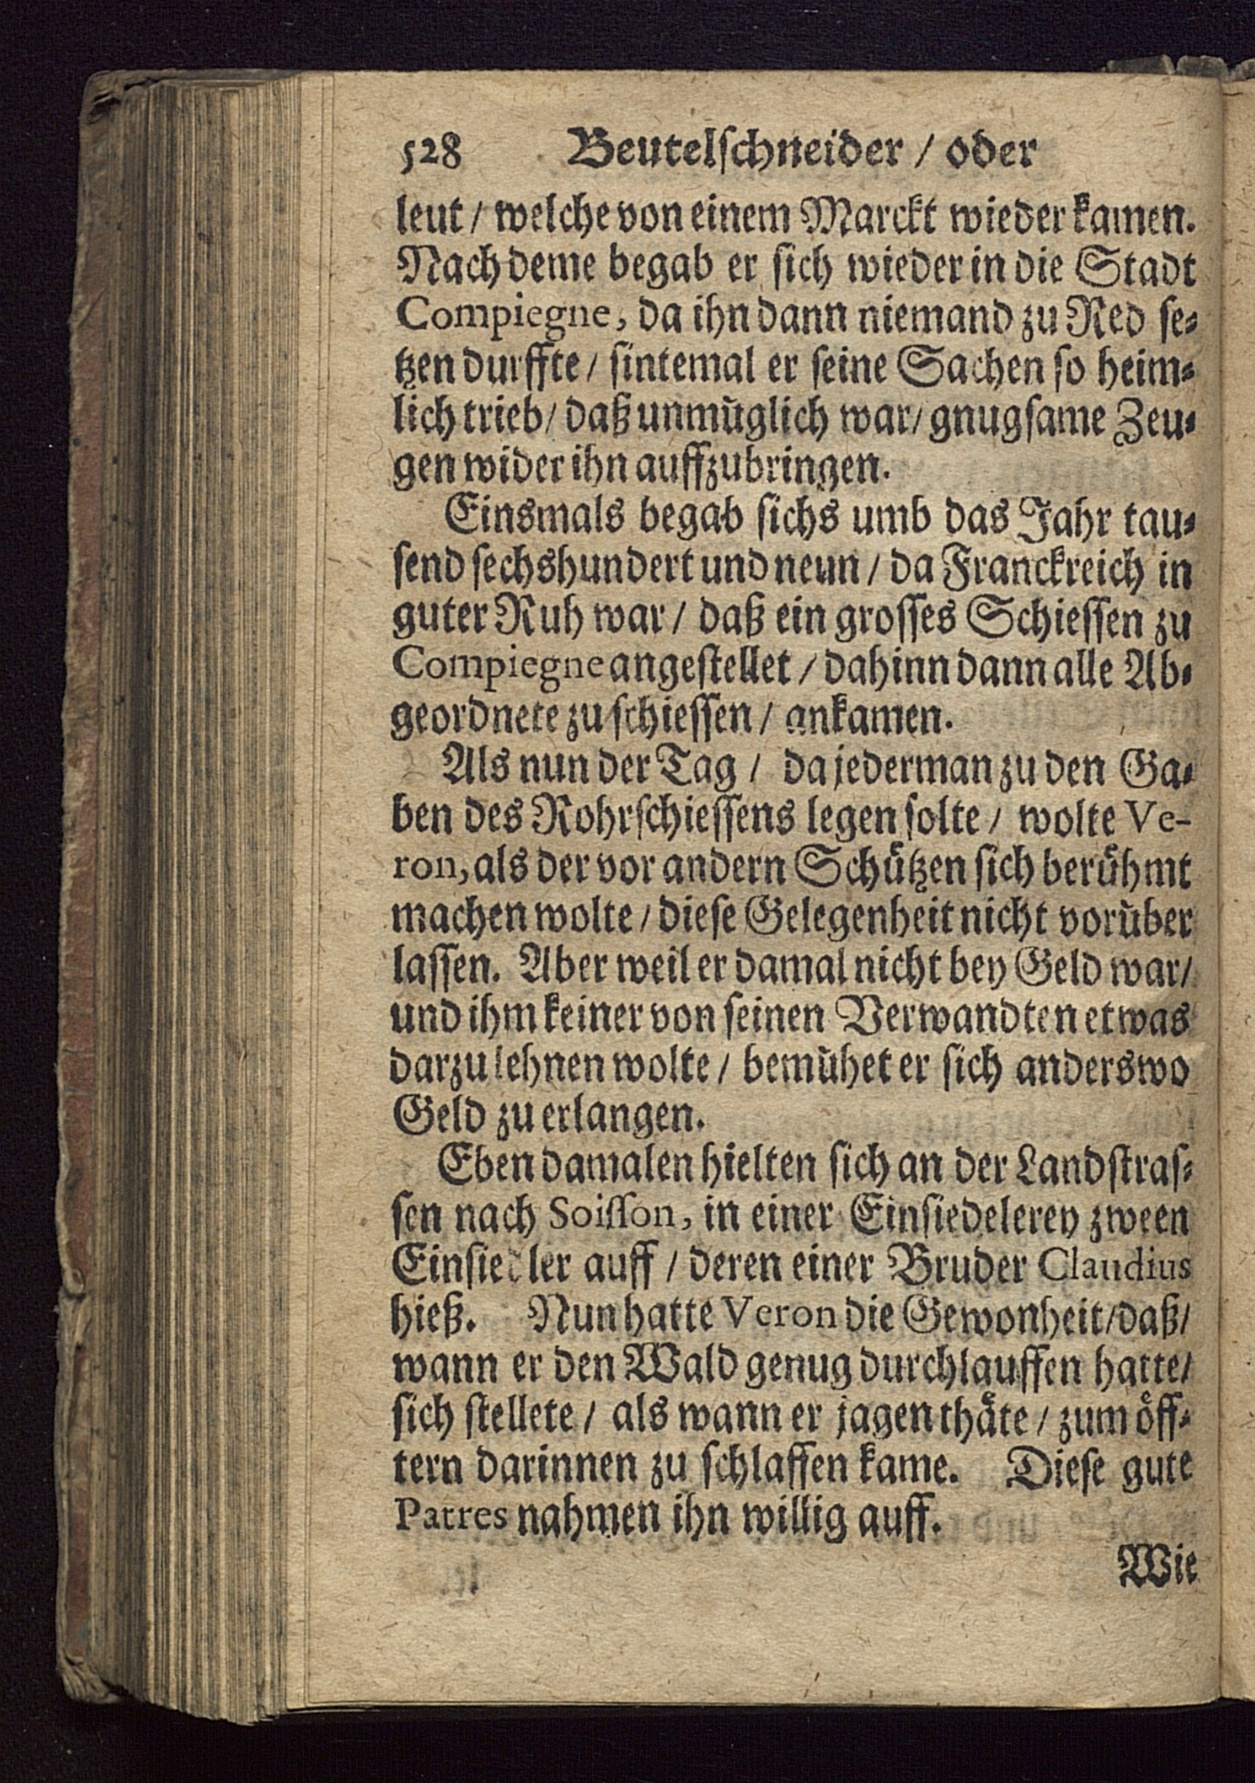 528 Beutelschneider / oder
leut / welche von einem Marckt wieder kamen.
Nach deme begab er sich wieder in die Stadt
Compiegne, da ihn dann niemand zu Red se-
tzen durffte / sintemal er seine Sachen so heim-
lich trieb / daß unmüglich war / gnugsame Zeu-
gen wider ihn auffzubringen.
Einsmals begab sichs umb das Jahr tau-
send sechshundert und neun / da Franckreich in
guter Ruh war / daß ein grosses Schiessen zu
Compiegne angestellet / dahinn dann alle Ab-
geordnete zu schiessen / ankamen.
Als nun der Tag / da jederman zu den Ga-
ben des Rohrschiessens legen solte / wolte Ve-
ron, als der vor andern Schützen sich berühmt
machen wolte / diese Gelegenheit nicht vorüber
lassen. Aber weil er damal nicht bey Geld war /
und ihm keiner von seinen Verwandten etwas
darzu lehnen wolte / bemühet er sich anderswo
Geld zu erlangen.
Eben damalen hielten sich an der Landstras-
sen nach Soisson, in einer Einsiedelerey zween
Einsiedler auff / deren einer Bruder Claudius
hieß. Nun hatte Veron die Gewonheit / daß /
wann er den Wald genug durchlauffen hatte /
sich stellete / als wann er jagen thäte / zum öff-
tern darinnen zu schlaffen kame. Diese gute
Patres nahmen ihn willig auff.
Wie